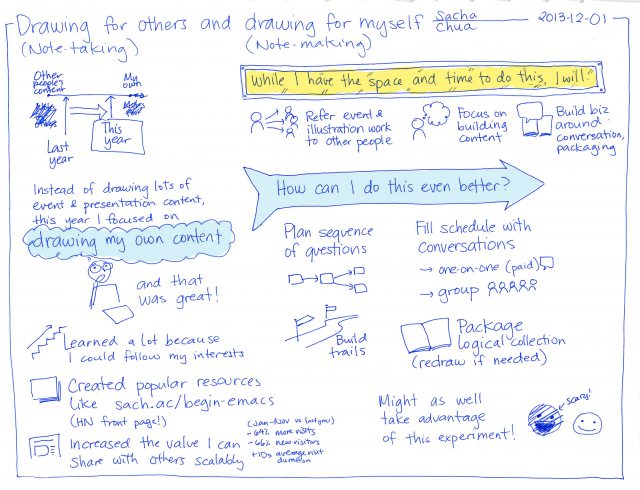 Drawing for others and drawing for myself
(Note-taking)
(Note-making)
Sacha
Chua
2013-12-01
Other
people's
content
My
own
Last
year
This
year
Instead of drawing lots of
event & presentation content,
this year I focused on
drawing my own content
and that
was great!
Learned a lot because
I could follow my interests
Created popular resources
like sach.ac/begin-emacs
(HN front page!)
Increased the value I can
share with others scalably
(Jan-Nov vs last year)
more visits
new visitors
+10s average visit
duration
While I have the space and time to do this, I will:
Refer event &
illustration work
to other people
Focus on
building
content
Build biz
around
conversation,
packaging
How can I do this even better?
Plan sequence
of questions
Build
trails
Fill schedule with
conversations
→ one-on-one (paid)
→ group
Package
logical collection
(redraw if needed)
Might as well
take advantage
of this experiment!
scary!